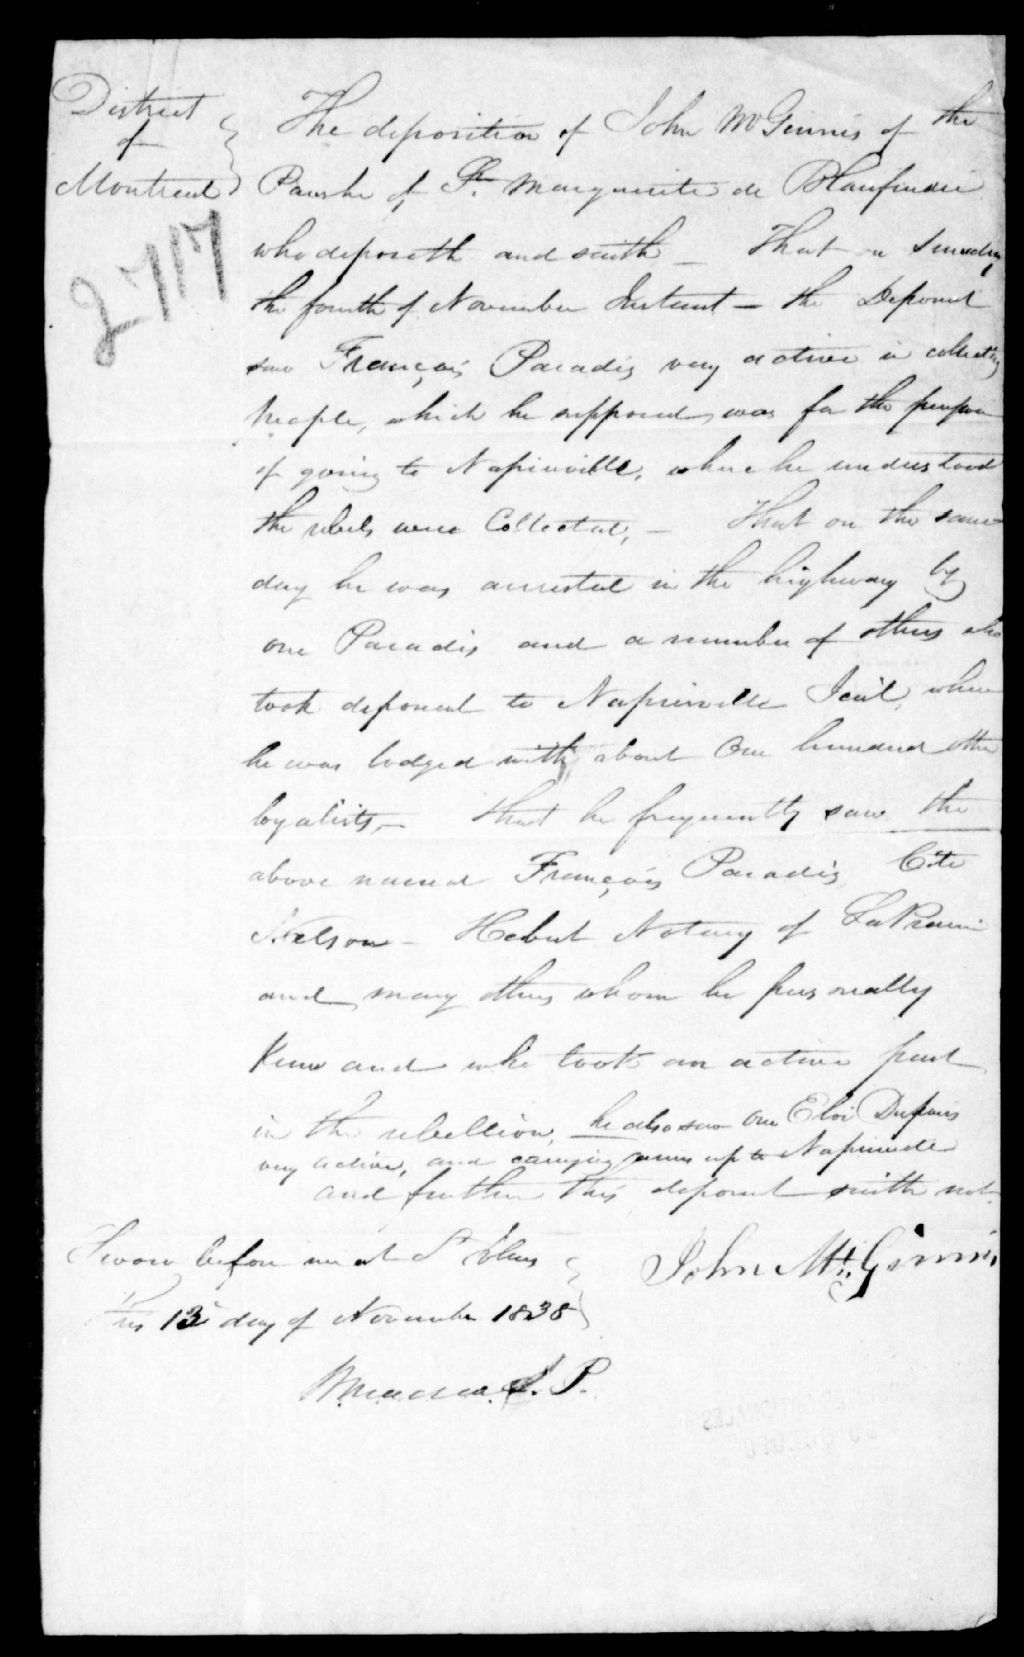 District
of
Montreal
2717
The deposition of John McGinnis of the
Parishe of St. Marguerite de Blairfindie
who deposeth and saith – That on Sunday
the fourth of November Instant – the Deponent
saw François Paradis very active in collecting
people, which he supposed was for the purpose
of going to Napierville, where he understood
the rebels were Collected, – That on the same
day he was arrested in the highway by
one Paradis and a number of others who
took deponent to Napierville Jail, where
he was lodged with about One hundred other
loyalists, – that he frequently saw the
above named François Paradis Cote
Nelson – Hebert Notary of LaPrairie
and many others whom he personally
Knew and who took an active part
in the rebellion, he also saw one Eloi Dupuis
very active, and carrying arms up to Napierville
and further this deponent saith not.
Sworn before me at St Johns
this 13 day of November 1838
John Mc.Ginnis
J. P.